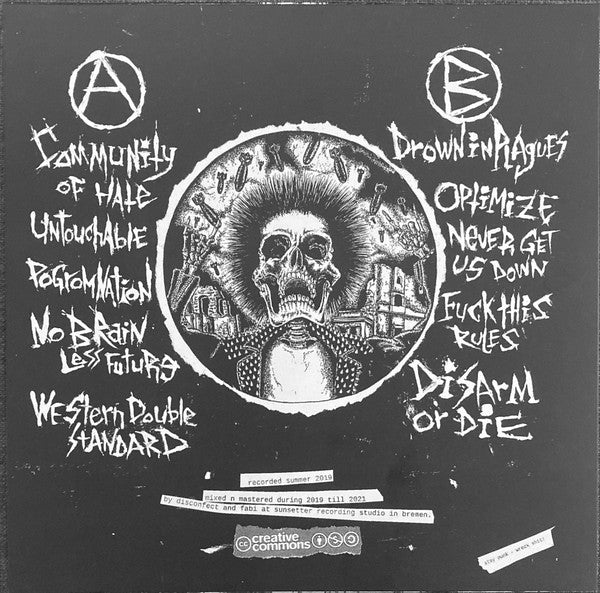 A
Community
of Hate
Untouchable
PogromNation
No Brain
Less Future
Western Double
Standard
B
Drown in Plagues
Optimize
Never Get
Us Down
Fuck this
Rules
Disarm
or Die
recorded summer 2019
mixed n mastered during 2019 till 2021
by disconfect and fabi at sunsetter recording studio in bremen.
cc creative
commons
stay punk - wreck shit!